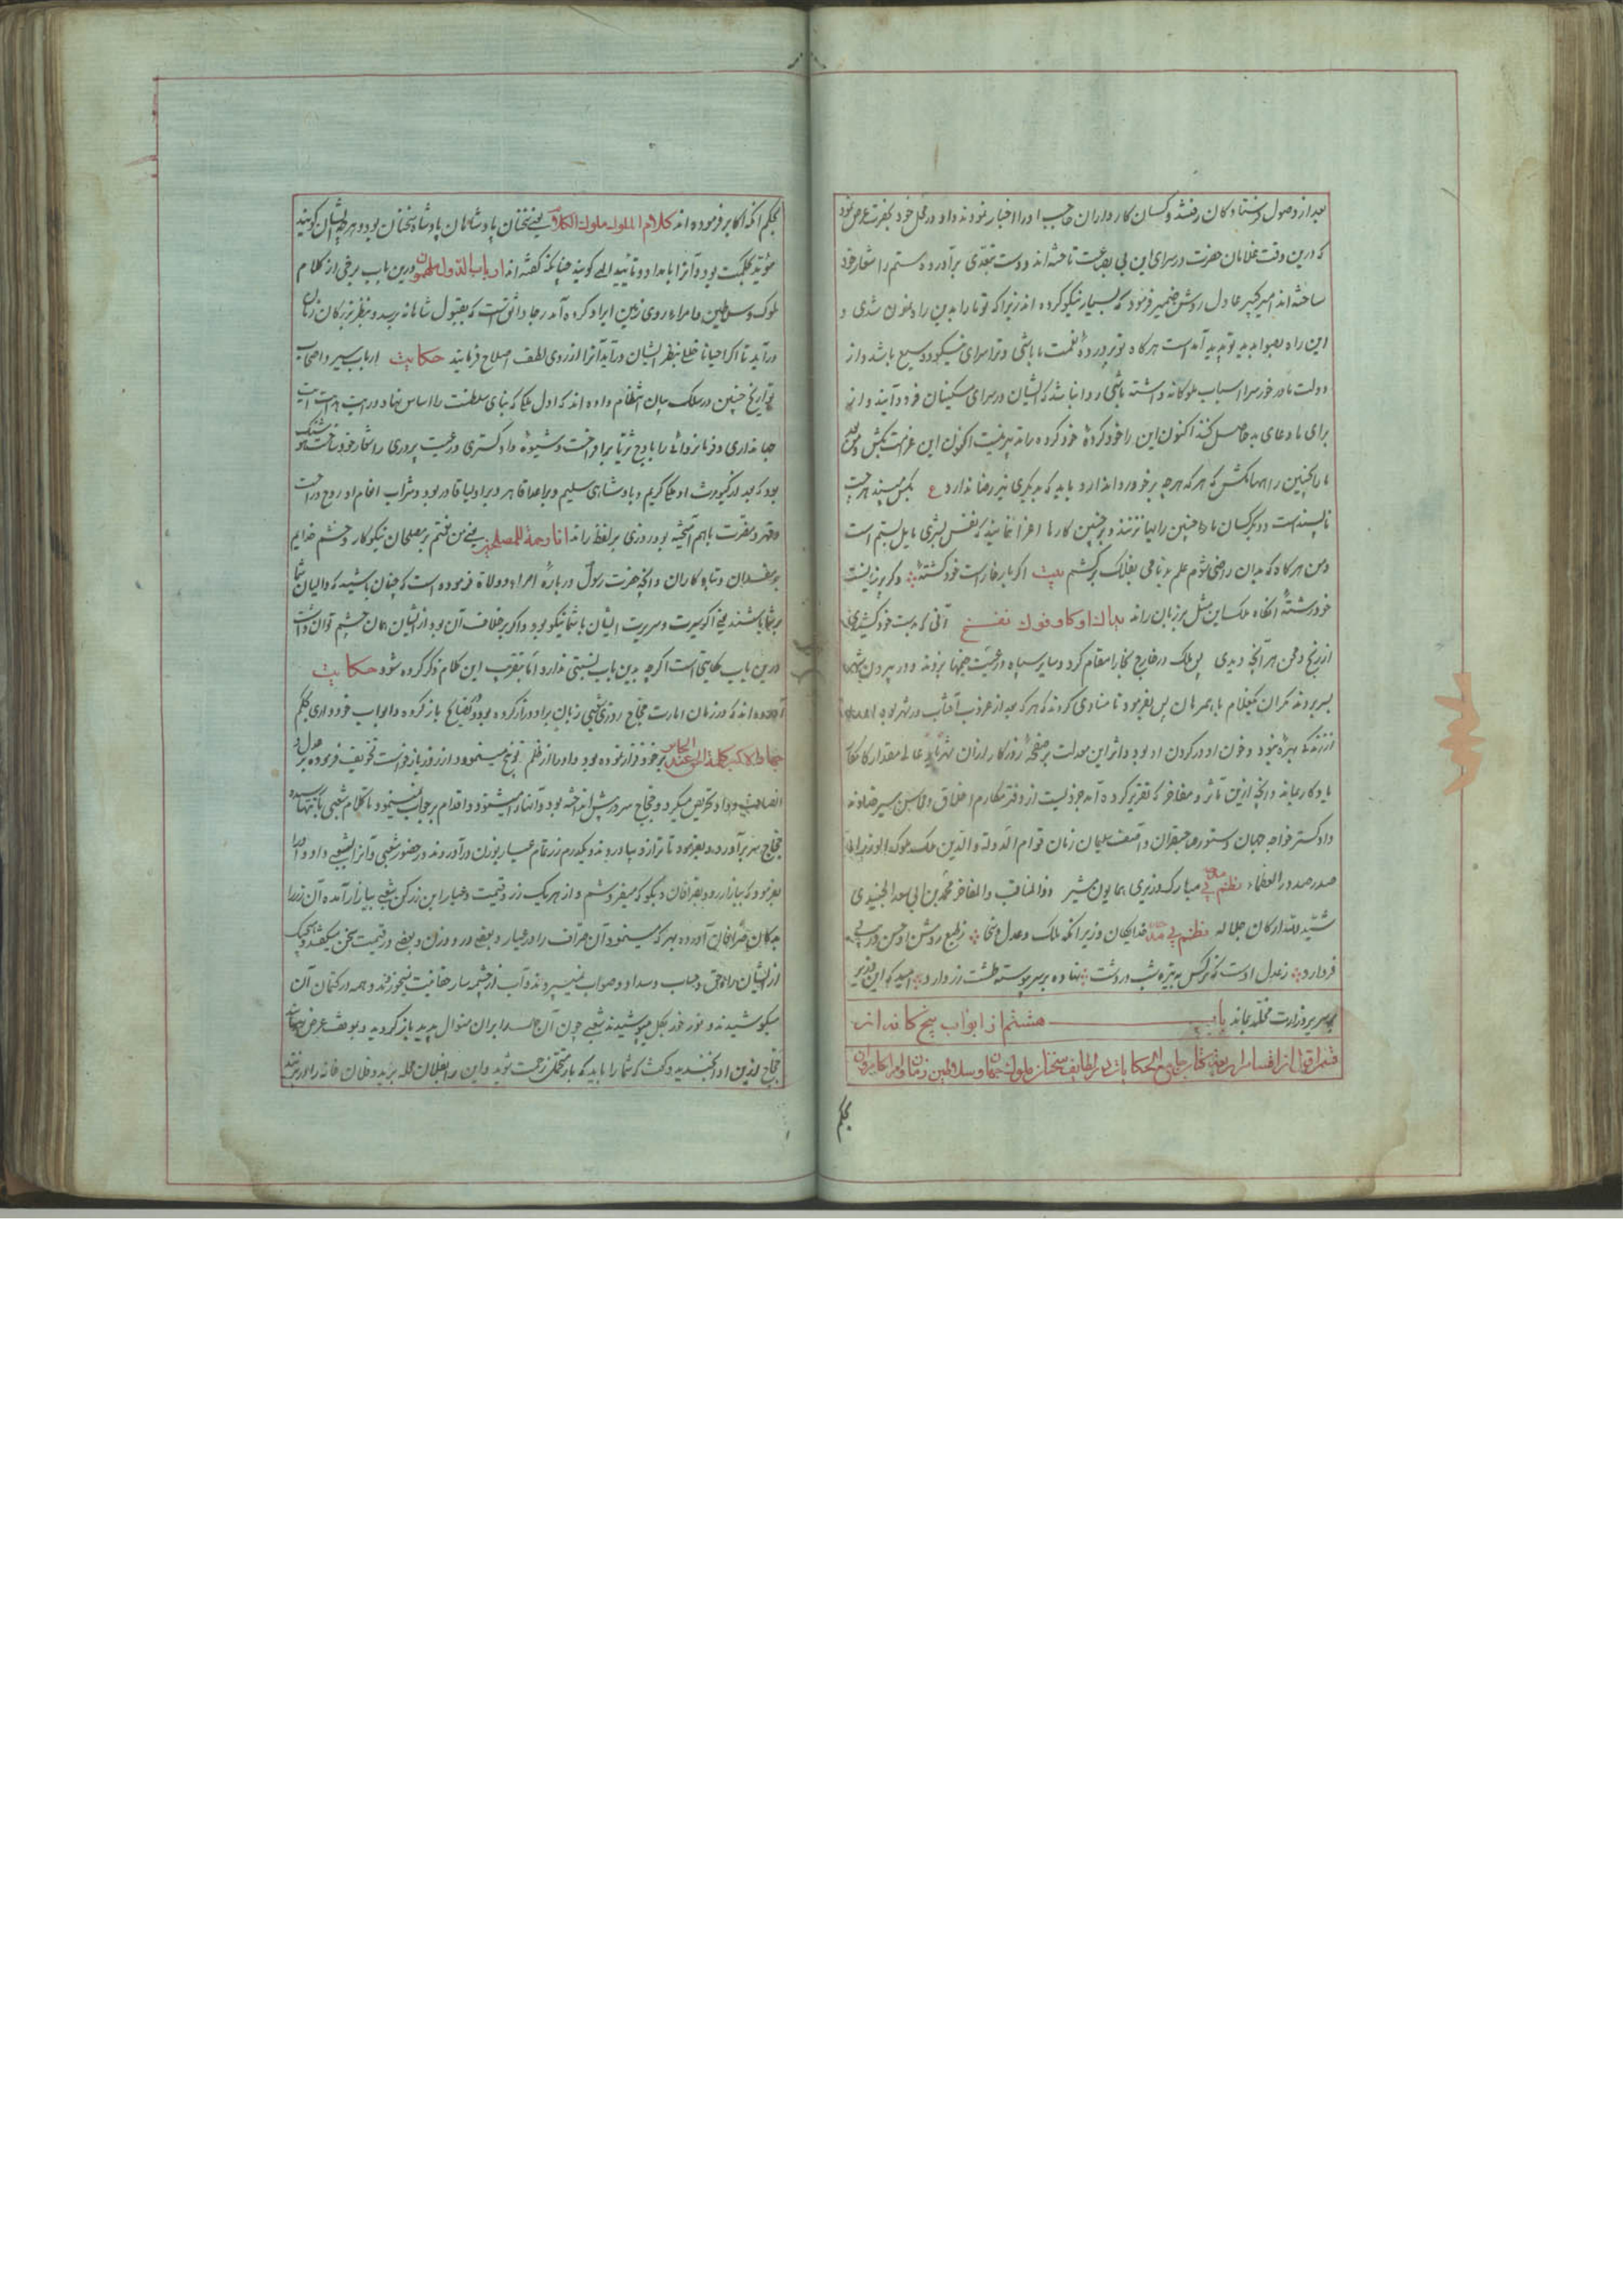 بعد از وصول فرستادکان رفتند و کسان کارداران صاحب را اخبار نمودند و او در محل خود بحضرت عرض نمود
که درین وقت غلامان حضرت در سرای این بی بضاعت تاخته اند و دست تعدی برآورده و ستم را شعار خود
ساخته اند امیر کبیر عادل روشن ضمیر فرمود که بسیار نیکو کرده اند زیرا که تو ما را بدین راه نمون شدی و
این راه بصوابدید تو پدید آمده است هرکاه تو پرورده نعمت ما باشی و ترا سرای نیکو و وسیع باشد و از
دولت ما در خور سرا اسباب ملوکانه داشته باشی روا نباشد که ایشان در سرای مسکینان فرود آیند و از
برای ما دعای بد حاصل کنند اکنون این را خود کردهٔ خود کرده را تدبیر نیست اکنون این غرامت بکش و من بعد
ما را بچنین راهها مکش که هر که هر چه بر خود روا ندارد باید که بدیگری نیز رضا ندارد ع بکس مپسند هر چت
ناپسند است و دیگر کسان ما را چنین راهها نزنند و بر چنین کارها اغرا ننمایند که نفس بشری مایل بستم است
و من هرکاه که بدان راضی شوم علم بدنامی بفلاک برکشم بیت اکر بار خار است خود کشتهٔ و کر پرنیانست
خود رشتهٔ آنکاه ملک این مثل بر زبان راند یداك اوكتا وفوك نفخ آنی که بدست خود کشیدی
از رنج و محن هر آنچه دیدی پس ملک در خارج بخارا مقام کرد و سایر سپاه و رعیت خیمها بزدند و در بیرون شهر
بسر بردند پس بفرمود تا منادی کردند که هر که بعد از غروب آفتاب در شهر بود
بهره نبود و خون او در کردن او بود و اثر این معدلت بر صفحهٔ روزکار
یادکار بماند و آنچه ازین مآثر و مفاخر که تقریر کرده آمد جزویست از دفتر مکارم اخلاق و محاسن سیر خداوند
دادکستر خواجه جهان دستور صاحبقران و آصف سلیمان زمان قوام الدولة والدین ملک ملوک الوزراء
صدر صدور العظماء نظم مبارک وزیری همایون مشیر ذو المناقب والمفاخر محمد بن ابی سعد الجنیدی
شید الله ارکان جلاله نظم خدایکان وزیر آنکه ملک و عدل و سخا ز طبع روشن او حسن و زیب
فر دارد ز عدل اوست که نرکس به تیره شب در دشت نهاده بر سر پیوسته طشت زر دارد امید که این وزیر
بر سریر وزارت مخلد بماند باب هشتم از ابواب پنج کانه از
قسم اول از اقسام اربعه کتاب جامع الحکایات در لطایف سخنان ملوک جهان و سلاطین زمان و امرا کامران
بحکم
بحکم آنکه اکابر فرموده اند كلام الملوك ملوك الكلام یعنی سخنان پادشاهان پادشاه سخنان بود و هر چه ایشان کویند
مؤید بحکمت بود و آنرا بامداد و تأیید الهی کویند چنانکه کفته اند ارباب الدول ملهمون درین باب برخی از کلام
ملوک و سلاطین و امراء روی زمین ایراد کرده آمد رجا واثق است که بقبول شاهانه برسد و بنظر بزرکان زمان
درآید تا اکر احیانا خللی بنظر ایشان درآید آنرا از روی لطف اصلاح فرمایند حکایت ارباب سیر و اصحاب
تواریخ چنین در سلک بیان انتظام داده اند که اول ملکی که بنای سلطنت را اساس نهاد و رایت
جهانداری و فرمانروائی را باوج ثریا برافراخت و شیوهٔ دادکستری و رعیت پروری را شعار خود ساخت هوشنک
بود که بعد از کیومرث او ملکی کریم و پادشاهی سلیم و بر اعدا قاهر و بر اولیا قادر بود و شراب انعام او روح و راحت
و قهر و مضرت باهم آمیخته بود روزی بر لفظ راند انا رحمة للمصلحین یعنی من رحمتم بر مصلحان نیکوکار و خشم خدایم
بر مفسدان و تباه کاران و آنچه حضرت رسول دربارهٔ امراء و ولاة فرموده است که چنان باشید که والیان شما
بر شما باشند یعنی اکر سیرت و سریرت ایشان با شما نیکو بود و اکر بر خلاف آن بود از ایشان همان چشم توان داشت
درین باب حکایتی است اکر چه بدین باب نسبتی ندارد اما بتقریب این کلام ذکر کرده شود حکایت
آورده اند که در زمان امارت حجاج روزی شعبی زبان برو دراز کرده بود و نصایح باز کرده و ابواب خودداری بحکم
كلمة الحق عند بر خود فراز نموده بود و او را از ظلم توبیخ مینمود و از روز بازخواست تخویف فرموده
انصاف و داد تحریص میکرد و حجاج سر در پیش انداخته بود و آنها را میشنود و اقدام بر جواب نمینمود تا کلام شعبی بانتها رسیده
حجاج سر برآورد و بفرمود تا ترازو بیاوردند و یکدرم زر تمام عیار بوزن درآوردند در حضور شعبی و آنرا بشعبی داد و او را
بفرمود که ببازار رود و بصرافان دیکر بکو که میفروشم و از هر یک زر و قیمت و عیار این زر کن شعبی ببازار آمده آن زر را
بدکان صرافان آورده بهر که مینمود آن صراف را در عیار و بعضی در وزن و بعضی در قیمت سخن میکفتند و هیچیک
از ایشان راه حق و حساب و سداد و صواب نمیسپردند و آب از چشمه سار حقانیت نمیخوردند و همه در کتمان آن
میکوشیدند و نور خور بکل میپوشیدند شعبی چون آن حال را بران منوال بدید باز کردید و بموقف عرض رسانید
حجاج ازین او بخندید و کفت که شما را باید که بار متحمل زحمت شوید و این